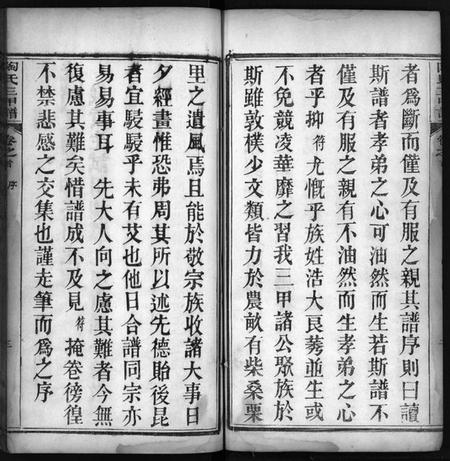 者為斷而僅及有服之親其譜序則曰讀
斯譜者孝弟之心可油然而生若斯譜不
僅及有服之親有不油然而生孝弟之心
者乎抑符尤慨乎族姓浩大良莠並生或
不免競凌華靡之習我三甲諸公聚族於
斯雖敦樸少文類皆力於農畝有柴桑栗
里之遺風焉且能於敬宗族收諸大事日
夕經畫惟恐弗周其所以述先德貽後昆
者宜駸駸乎未有艾也他日合譜同宗亦
易易事耳 先大人向之慮其難者今無
復慮其難矣惜譜成不及見符掩卷徬徨
不禁悲感之交集也謹走筆而為之序
陶氏三甲譜 卷之首 序